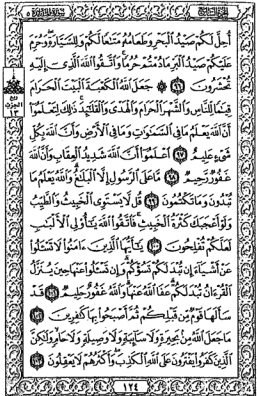 أُحِلَّ لَكُمْ صَيْدُ ٱلْبَحْرِ وَطَعَامُهُۥ مَتَٰعًا لَّكُمْ وَلِلسَّيَّارَةِ وَحُرِّمَ
عَلَيْكُمْ صَيْدُ ٱلْبَرِّ مَا دُمْتُمْ حُرُمًا وَٱتَّقُوا۟ ٱللَّهَ ٱلَّذِىٓ إِلَيْهِ
تُحْشَرُونَ ٩٦ جَعَلَ ٱللَّهُ ٱلْكَعْبَةَ ٱلْبَيْتَ ٱلْحَرَامَ
قِيَٰمًا لِّلنَّاسِ وَٱلشَّهْرَ ٱلْحَرَامَ وَٱلْهَدْىَ وَٱلْقَلَٰٓئِدَ ذَٰلِكَ لِتَعْلَمُوٓا۟
أَنَّ ٱللَّهَ يَعْلَمُ مَا فِى ٱلسَّمَٰوَٰتِ وَمَا فِى ٱلْأَرْضِ وَأَنَّ ٱللَّهَ بِكُلِّ
شَىْءٍ عَلِيمٌ ٩٧ ٱعْلَمُوٓا۟ أَنَّ ٱللَّهَ شَدِيدُ ٱلْعِقَابِ وَأَنَّ ٱللَّهَ
غَفُورٌ رَّحِيمٌ ٩٨ مَّا عَلَى ٱلرَّسُولِ إِلَّا ٱلْبَلَٰغُ وَٱللَّهُ يَعْلَمُ مَا
تُبْدُونَ وَمَا تَكْتُمُونَ ٩٩ قُل لَّا يَسْتَوِى ٱلْخَبِيثُ وَٱلطَّيِّبُ
وَلَوْ أَعْجَبَكَ كَثْرَةُ ٱلْخَبِيثِ فَٱتَّقُوا۟ ٱللَّهَ يَٰٓأُو۟لِى ٱلْأَلْبَٰبِ
لَعَلَّكُمْ تُفْلِحُونَ ١٠٠ يَٰٓأَيُّهَا ٱلَّذِينَ ءَامَنُوا۟ لَا تَسْـَٔلُوا۟
عَنْ أَشْيَآءَ إِن تُبْدَ لَكُمْ تَسُؤْكُمْ وَإِن تَسْـَٔلُوا۟ عَنْهَا حِينَ يُنَزَّلُ
ٱلْقُرْءَانُ تُبْدَ لَكُمْ عَفَا ٱللَّهُ عَنْهَا وَٱللَّهُ غَفُورٌ حَلِيمٌ ١٠١ قَدْ
سَأَلَهَا قَوْمٌ مِّن قَبْلِكُمْ ثُمَّ أَصْبَحُوا۟ بِهَا كَٰفِرِينَ ١٠٢
مَا جَعَلَ ٱللَّهُ مِنۢ بَحِيرَةٍ وَلَا سَآئِبَةٍ وَلَا وَصِيلَةٍ وَلَا حَامٍ وَلَٰكِنَّ
ٱلَّذِينَ كَفَرُوا۟ يَفْتَرُونَ عَلَى ٱللَّهِ ٱلْكَذِبَ وَأَكْثَرُهُمْ لَا يَعْقِلُونَ ١٠٣
١٢٤